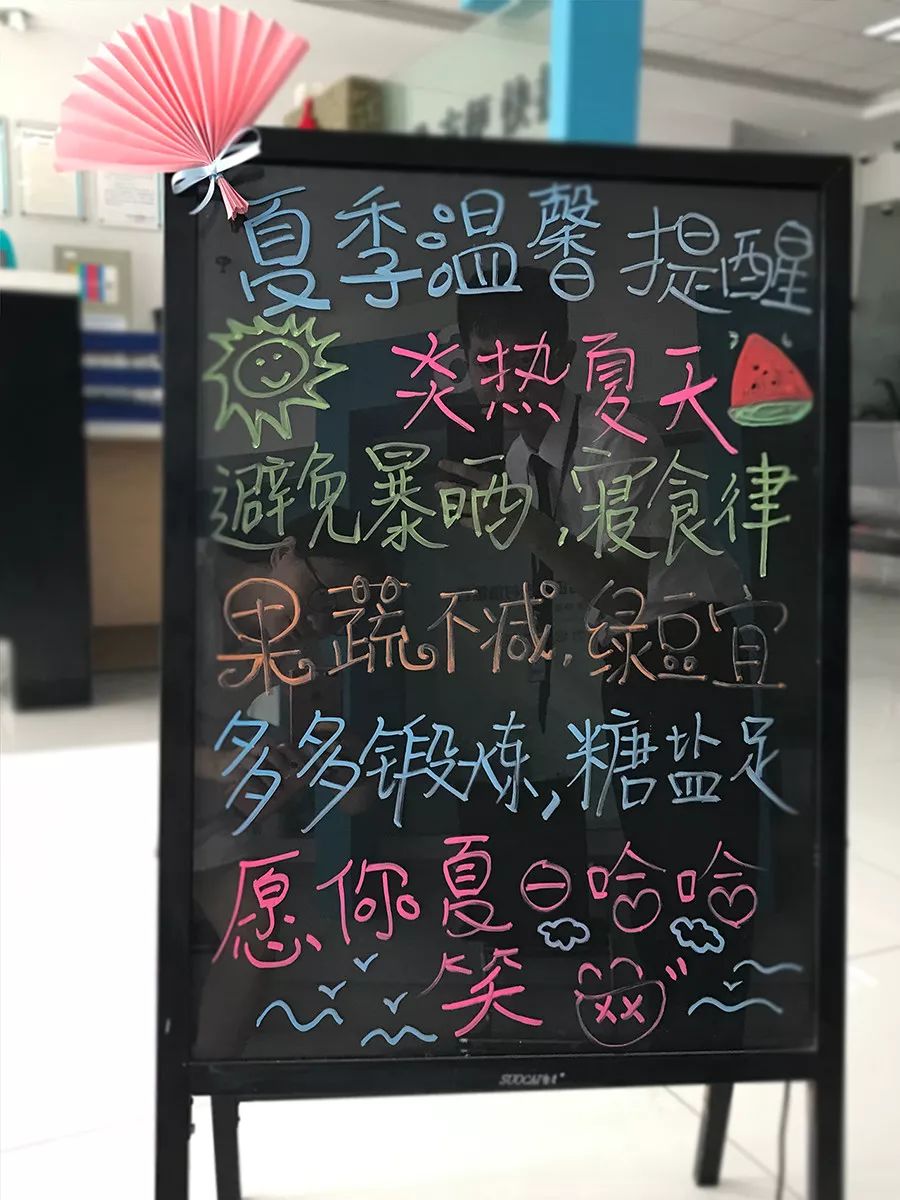 夏季温馨提醒
炎热夏天
避免暴晒,寝食律
果蔬不减,绿豆宜
多多锻炼,糖盐足
愿你夏日哈哈
笑